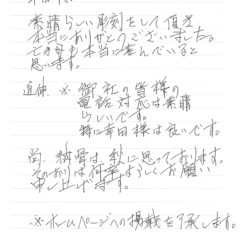 素晴らしい彫刻をして頂き
本当にありがとうございました。
亡き母も本当に喜んでいると
思います。
追伸、※ 御社の皆様の
電話対応は素晴
らしいです。
特に幸田様は良いです。
尚、納骨は、秋に思っております。
その折は何卒よろしくお願い
申し上げます。
※ホームページへの掲載を了承します。